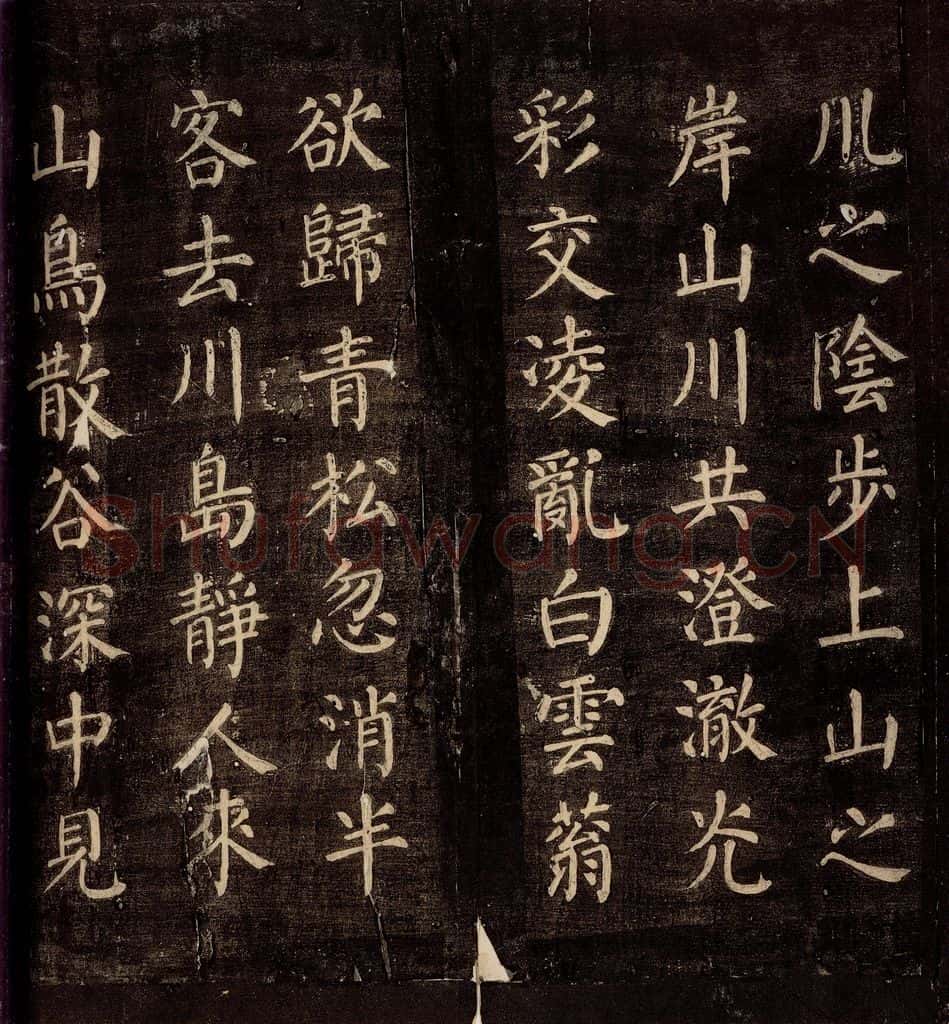 川之陰步上山之
岸山川共澄澈光
彩交凌亂白雲蓊
欲歸青松忽消半
客去川島靜人來
山鳥散谷深中見
Shufawang.CN